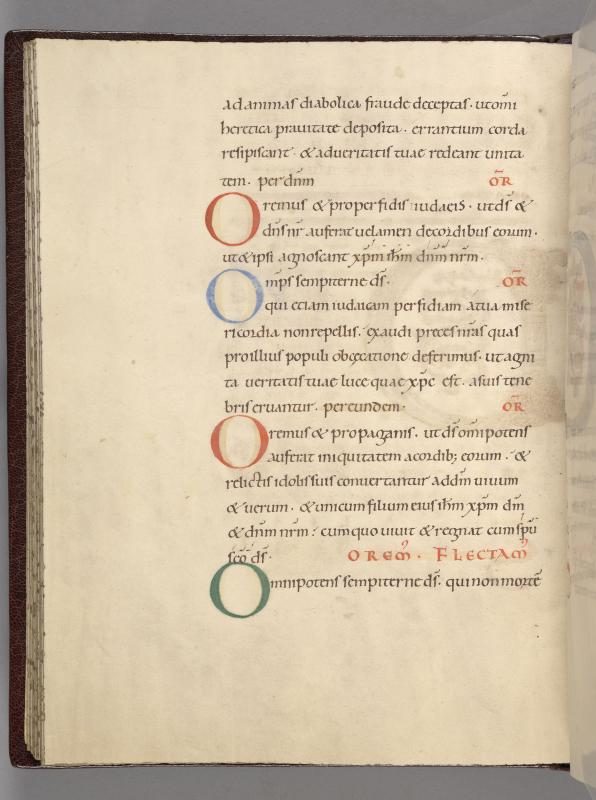 adanimas diabolica fraude deceptas· utom̄i
heretica prauitate deposita· errantium corda
resipiscant· & aduẽritatis tuae redeant unita
tem· per dn̄m OR̄
Oremus & proper fidis iudaeis· ut ds̄ &
dn̄s nr̄ auferat uelamen decordibus eorum·
ut & ipsi agnoscant xp̄m ih̄m dn̄m nr̄m·
Omp̄s sempiterne ds̄· OR̄
qui etiam iudaicam perfidiam atua mise
ricordia nonrepellis· exaudi preces nr̄as quas
proillius populi obcecatione deferimus· ut agni
ta ueritatis tuae luce quae xp̄c est· asuis tene
bris eruantur· per eundem· OR̄
Oremus & propaganis· ut ds̄ om̄ipotens
auferat iniquitatem acordib; eorum· &
relictis idolis suis conuertantur addm̄ uiuum
& uerum· & unicum filium eius ih̄m xp̄m dm̄
& dn̄m nr̄m: cum quo uiuit & regnat cum sp̄u
sc̄o ds̄· OREM̄· FLECTAM̄
Omnipotens sempiterne ds̄· qui non mortē